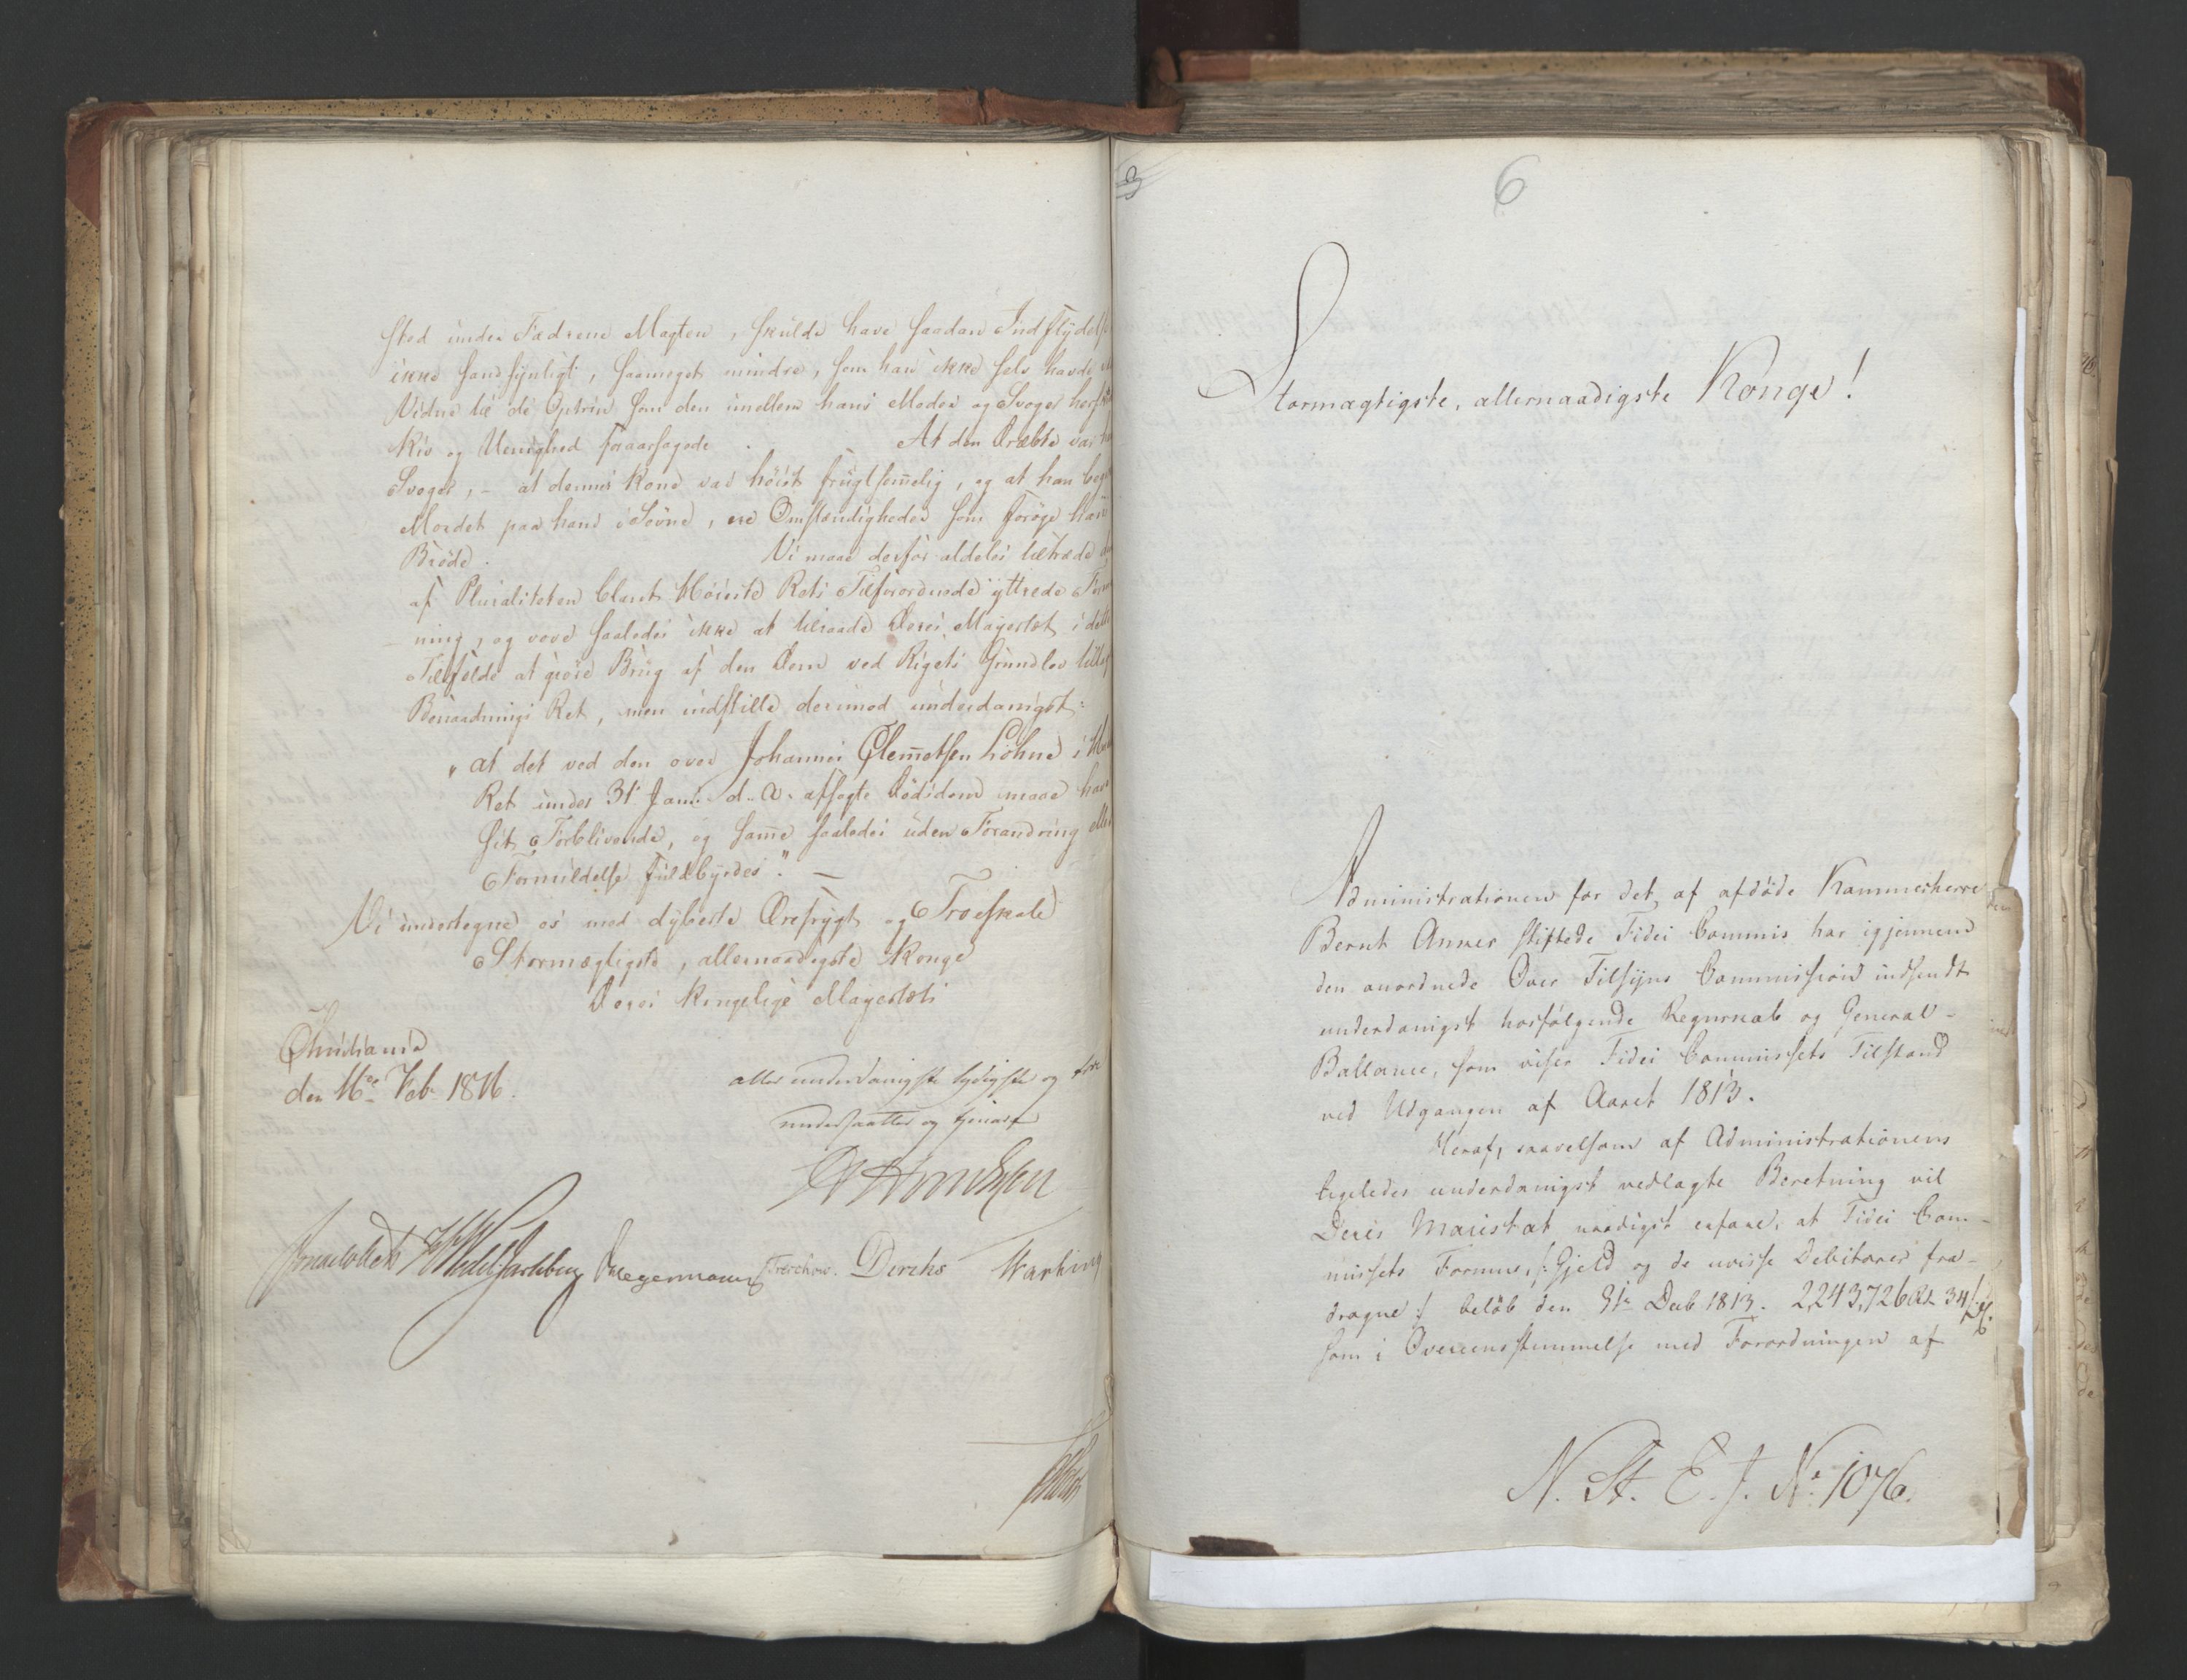 sted under Fædrene Magten, skulde have saadan Indflydelse
ikke sandsynligt, saameget mindre, som han ikke selv havde
Vidne til de Optrin som den imellem hans Moder og Svoger
Kiv og Uenighed foraarsagede. At den Dræbte var
Svoger, - at dennes Kone var höist frugtsom̅elig, og at han
Mordet paa ham i Sövne, ere Omstændigheder som foröge hans
Bröde. Vi maae derfor aldeles tiltræde
af Pluraliteten blant Höieste Rets Tilforordnede yttrede
ning, og vove saaledes ikke at tilraade Deres Majestæt i dette
Tilfelde at giöre Brug af den Dem ved Rigets Grundlov
Benaadnings Ret, men indstille derimod underdanigst:
"at det ved den over Johannes Clem̅etsen Löhne i
Ret under 31 Jan: d. A. afsagte Dödsdom maae have
sit Forblivende, og sam̅e saaledes uden Forandring eller
Formildelse fuldbyrdes". —
Vi undertegne os med dybeste Ærefrygt og Troeskab
Stormægtigste, allernaadigste Konge
Deres Kongelige Majestæts
Christiania
den 16de Feb 1816.
aller underdanigste lydigste og
undersaatter og tienere
Sommerhielm Wedel Jarlsberg Hegermann Treschow. Diriks
6
Stormægtigste, allernaadigste Konge!
Administrationen for det, af afdöde Kammerherre
Bernt Anker stiftede Fidei Commis har igjennem
den anordnede Over Tilsyns Commission indsendt
underdanigst hosfölgende Regnskab og General-
Ballance, som viser Fidei Commissets Tilstand
ved Udgangen af Aaret 1813.
Heraf, saavelsom af Administrationens
ligeledes underdanigst vedlagte Beretning vil
Deres Majestæt naadigst erfare, at Fidei Com-
missets Formue, /: Gjeld og de uvisse Debitorer fra-
dragne :/ belöb den 31te Decb 1813. 2,243,726 Rd. 34 ß.
som i Overeensstemmelse med Forordningen af
N. St. E. J. No. 1076.